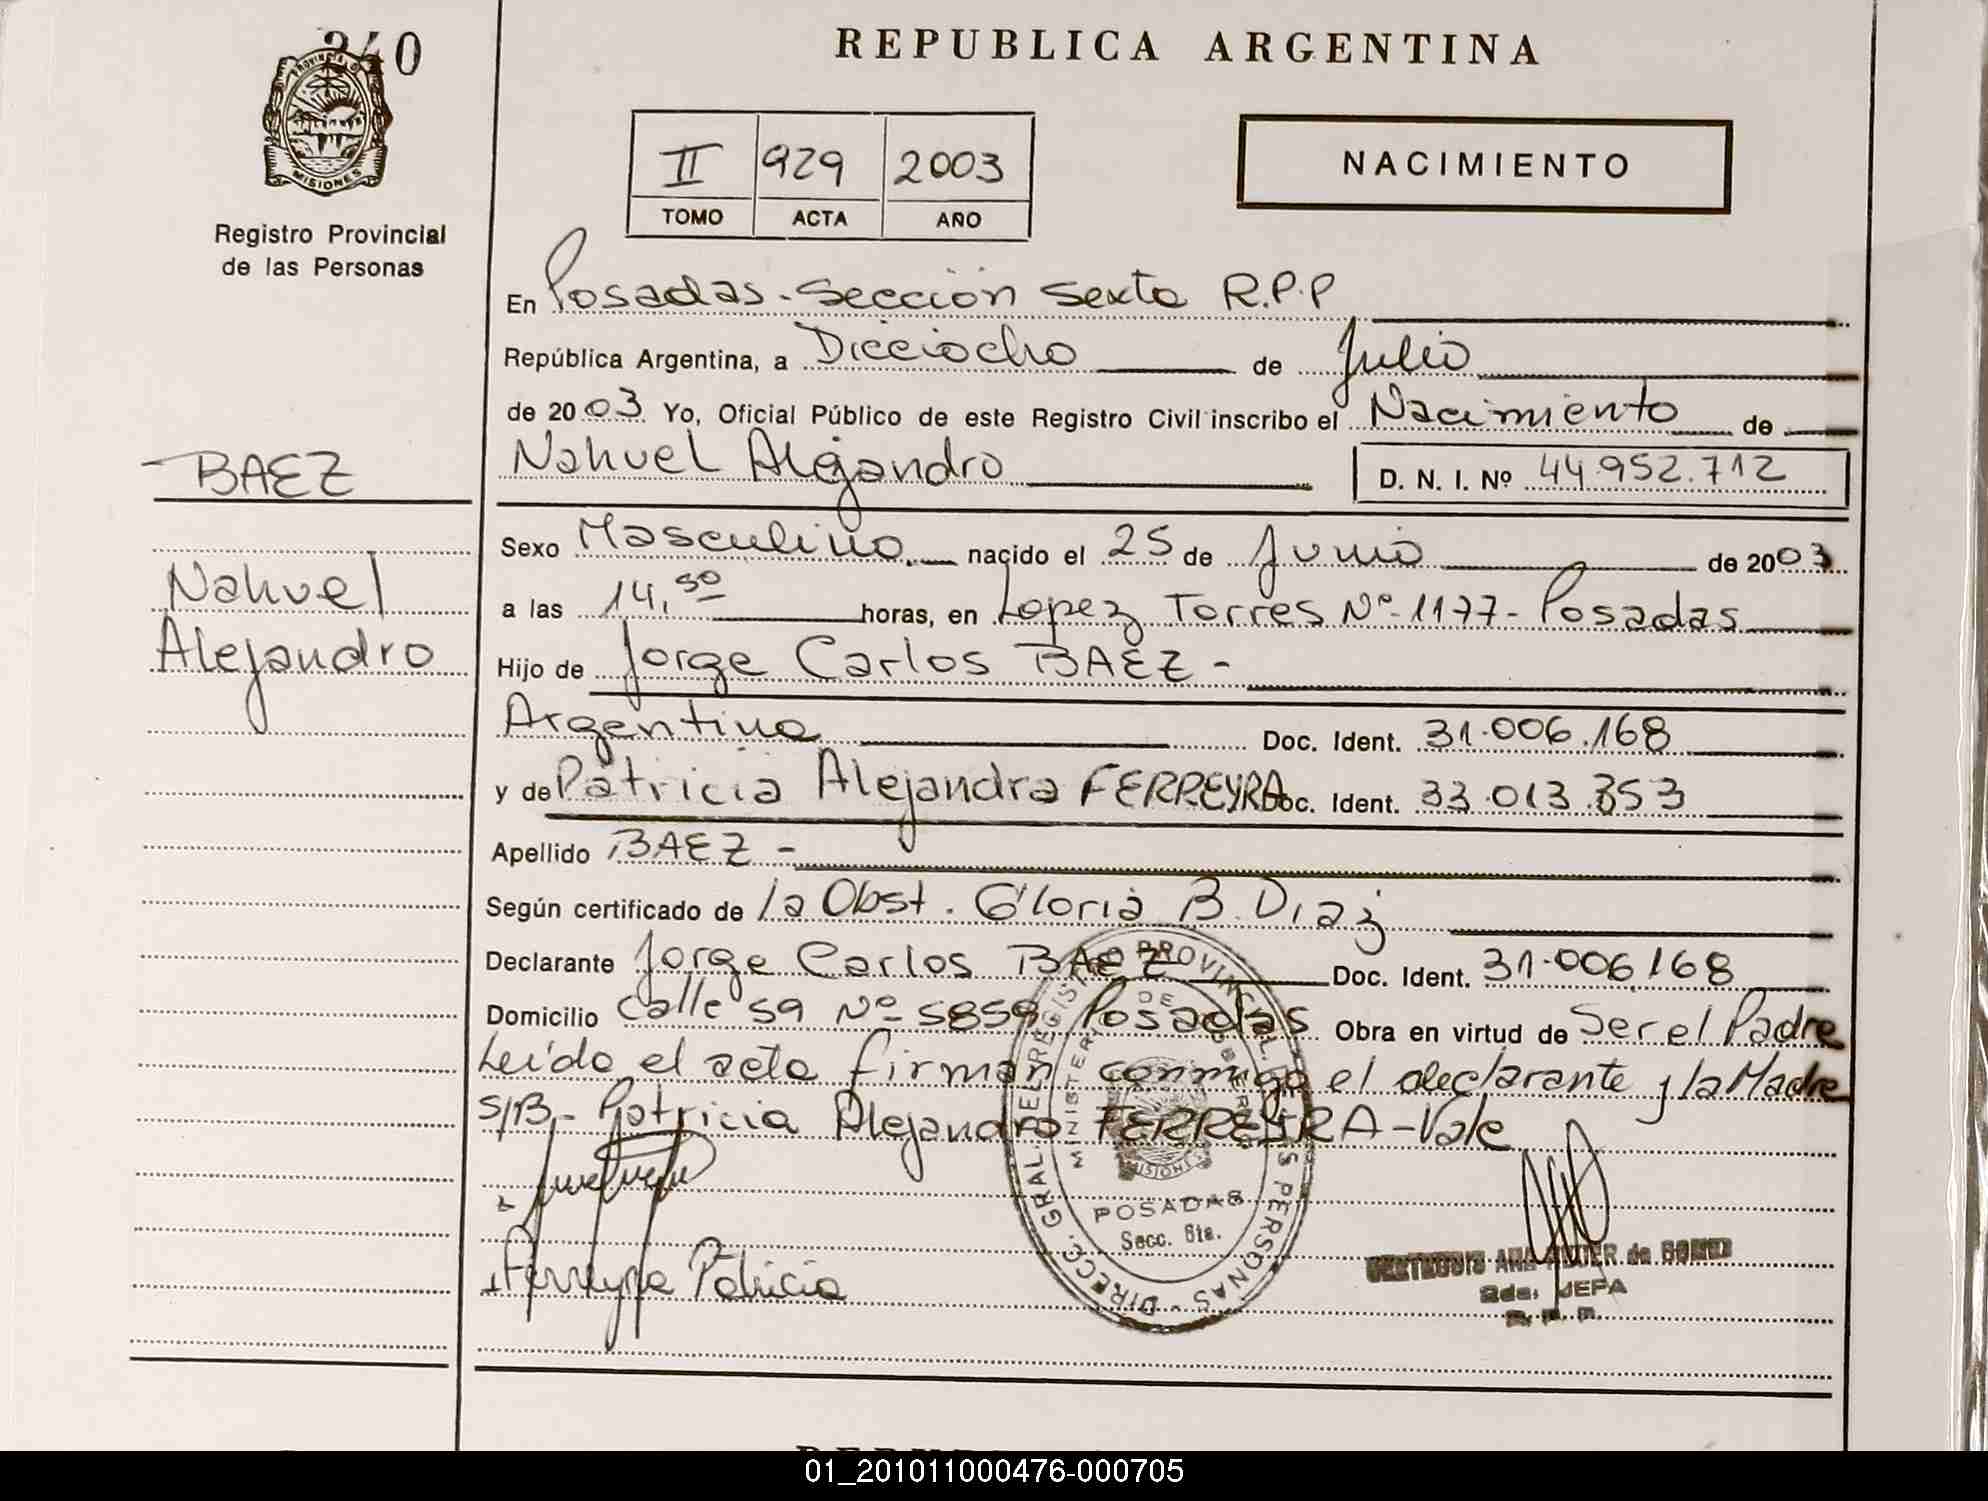 240
PROVINCIA D
MISIONES
Registro Provincial
de las Personas
REPUBLICA ARGENTINA
II 929 2003
TOMO ACTA AÑO
NACIMIENTO
En Posadas - Sección Sexta R.P.P
República Argentina, a Dieciocho de Julio
de 2003 Yo, Oficial Público de este Registro Civil inscribo el Nacimiento de
Nahuel Alejandro D. N. I. Nº 44.952.712
BAEZ
Nahuel
Alejandro
Sexo Masculino nacido el 25 de Junio de 2003
a las 14,50 horas, en Lopez Torres Nº 1177 - Posadas
Hijo de Jorge Carlos BAEZ -
Argentina Doc. Ident. 31.006.168
y de Patricia Alejandra FERREYRA Doc. Ident. 33.013.353
Apellido BAEZ -
Según certificado de la Obst. Gloria B. Diaz
Declarante Jorge Carlos BAEZ Doc. Ident. 31.006168
Domicilio Calle 59 Nº 5859 Posadas Obra en virtud de Ser el Padre
Leída el acta firman conmigo el declarante y la Madre
S/B - Patricia Alejandra FERREYRA - Vale
Ferreyra Patricia
DIRECC. GRAL. DEL REGISTRO PROVINCIAL DE LAS PERSONAS
MINISTERIO DE GOBIERNO
MISIONES
POSADAS
Secc. 6ta.
de GOMEZ
JEFA
R. P. P.
01_201011000476-000705